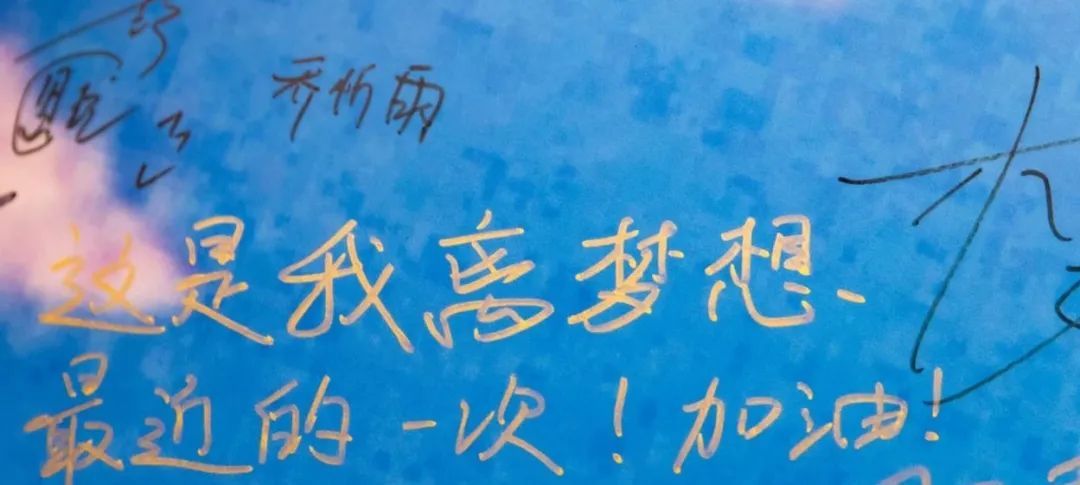 乔忻雨
这是我离梦想
最近的一次！加油！